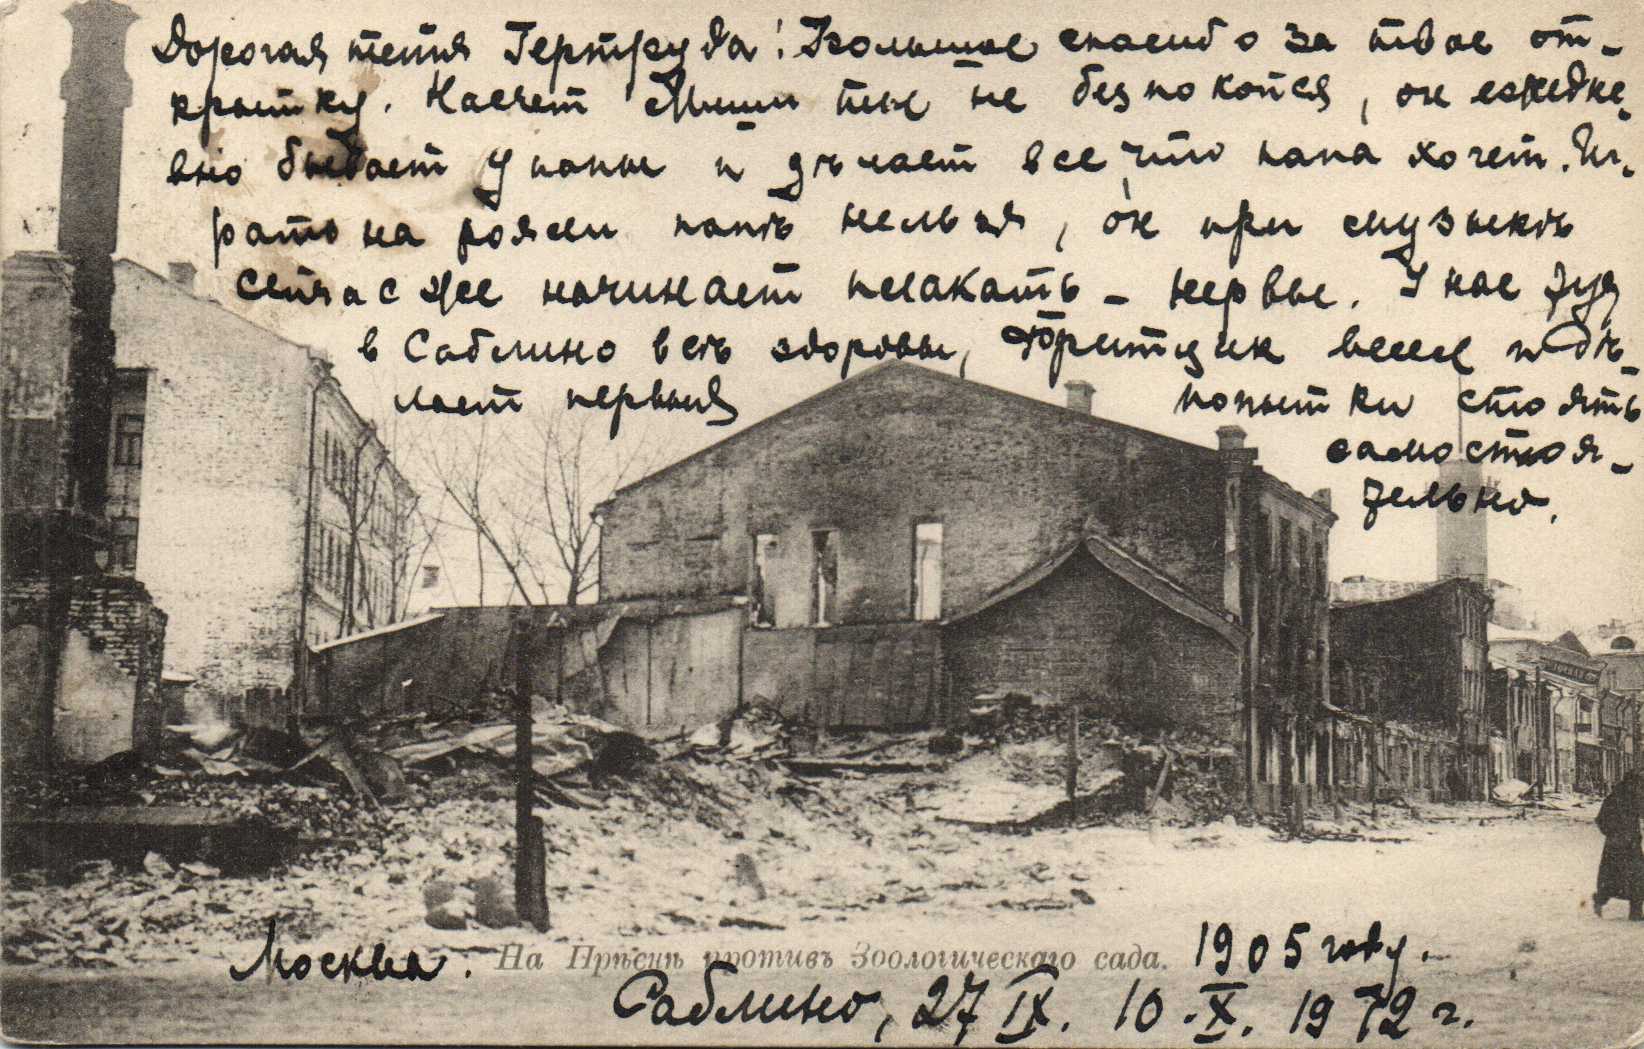 Дорогая тетя Гертруда! Большое спасибо за твое от-
крытку. Насчет Миши ты не безпокойся, он ежедне-
вно бывает у папы и дѣлает все, что папа хочет. Иг-
рать на рояли папѣ нельзя, он при музыкѣ
сейчас же начинает плакать - нервы. У нас тут
в Саблино всѣ здоровы, Фритцик весел и дѣ-
лает первыя попытки стоять
самостоя-
тельно.
Москва. На Прѣснѣ противъ Зоологическаго сада. 1905 году.
Саблино, 27 IX. 10.X. 1972 г.